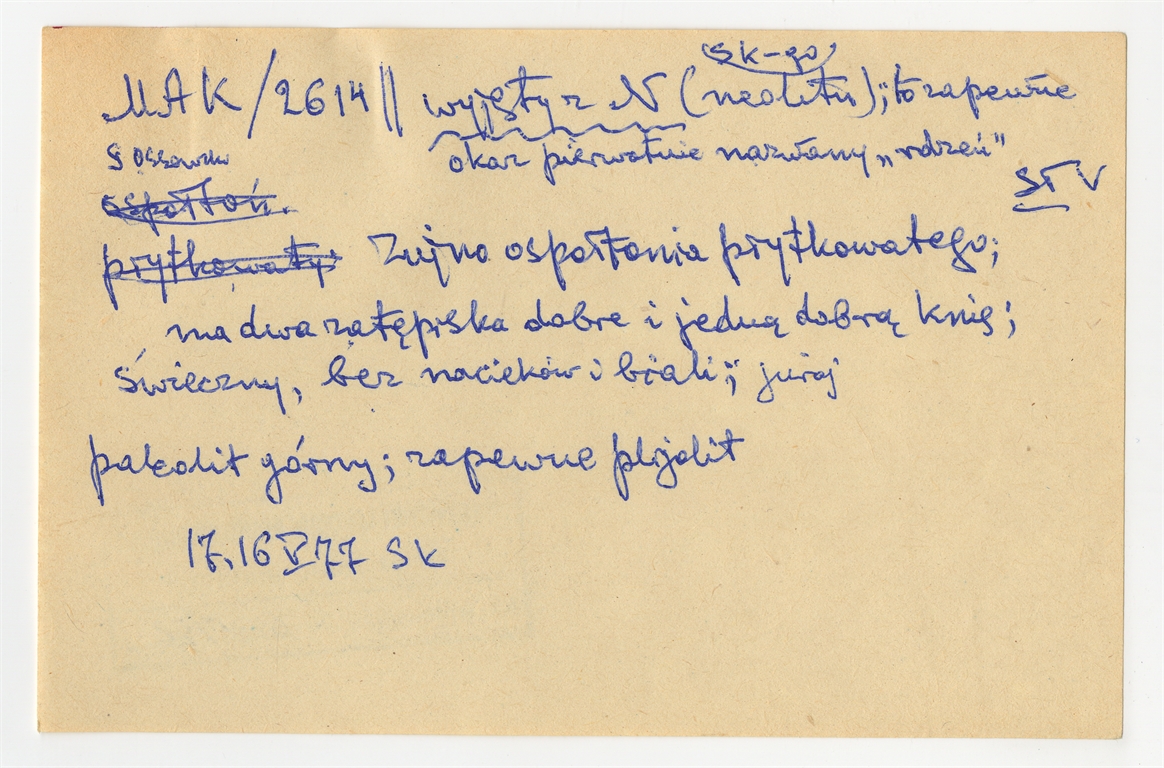 sk-go
MAK/2614 || wyjęty z N (neolitu); to zapewne
S Ossowski okaz pierwotnie nazwany „rdzeń"
ST V
odpołtoń.
prytkowaty Zujno ospołtonia prytkowatego;
ma dwa zatępiska dobre i jedną dobrą knię;
świeczny, bez nacieków i biali; juraj
paleolit górny; zapewne plijolit
17.16 V 77 SK